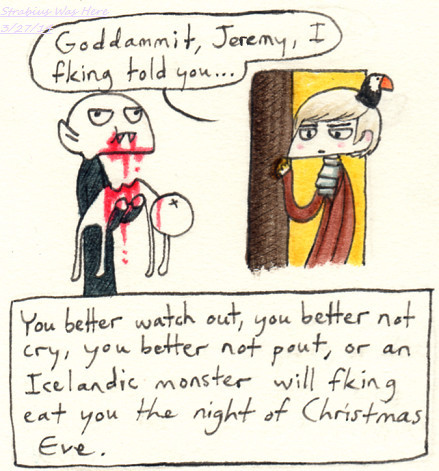 Strabius Was Here
3/27/14
Goddammit, Jeremy, I
fking told you...
You better watch out, you better not
cry, you better not pout, or an
Icelandic monster will fking
eat you the night of Christmas
Eve.